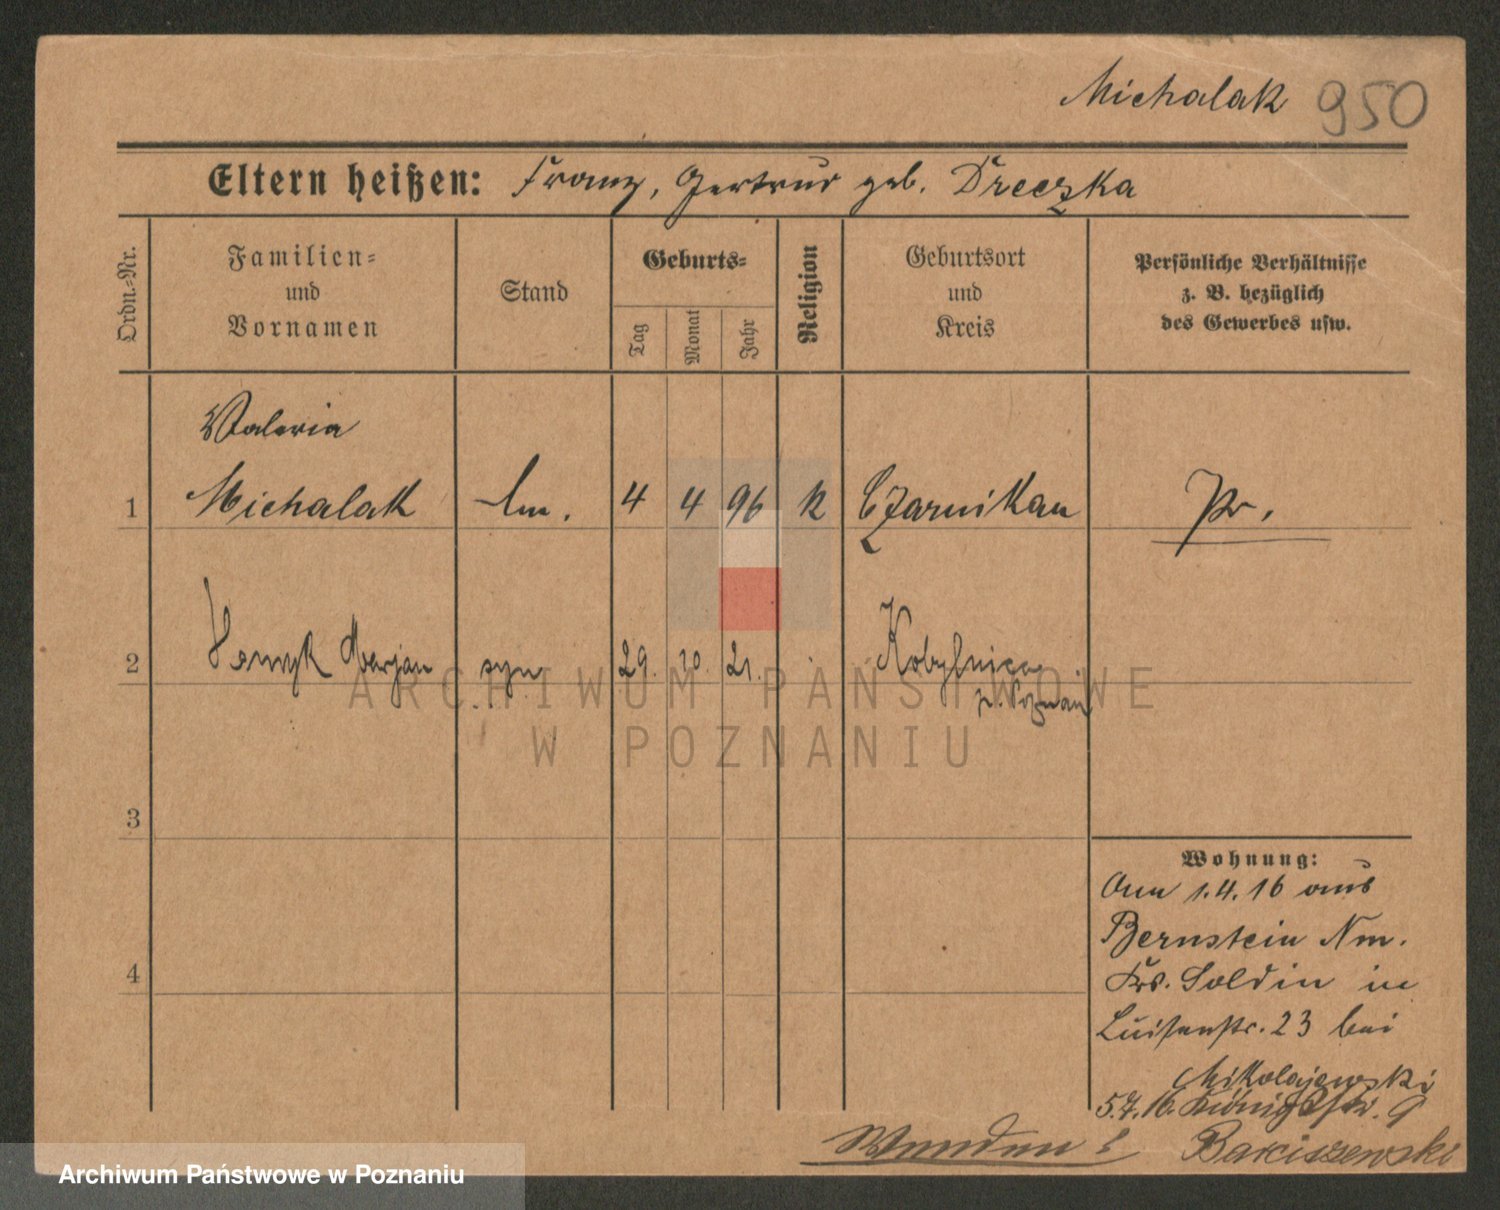 Michalak 950
Eltern heißen: Franz, Gertrud geb. Dreczka
Ordn.-Nr.
Familien-
und
Vornamen
Stand
Geburts-
Tag
Monat
Jahr
Religion
Geburtsort
und
Kreis
Persönliche Verhältnisse
z. B. bezüglich
des Gewerbes usw.
Valeria
1 Michalak 4 4 96 k Czarnikau
2 Henryk Marjan syn 29. 10. 21. Kobylnica
p. Poznań
ARCHIWUM PAŃSTWOWE
W POZNANIU
3
4
Wohnung:
Am 1.4.16 aus
Bernstein Nm.
Krs. Soldin in
Luisenstr. 23 bei
Mikolajewski
5.7.16. Königstr. 9
Barciszewski
Archiwum Państwowe w Poznaniu